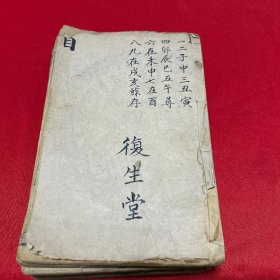 一二子中三丑寅
四卯辰巳五午尋
六在未申七在酉
八九在戌亥餘存
復生堂
目